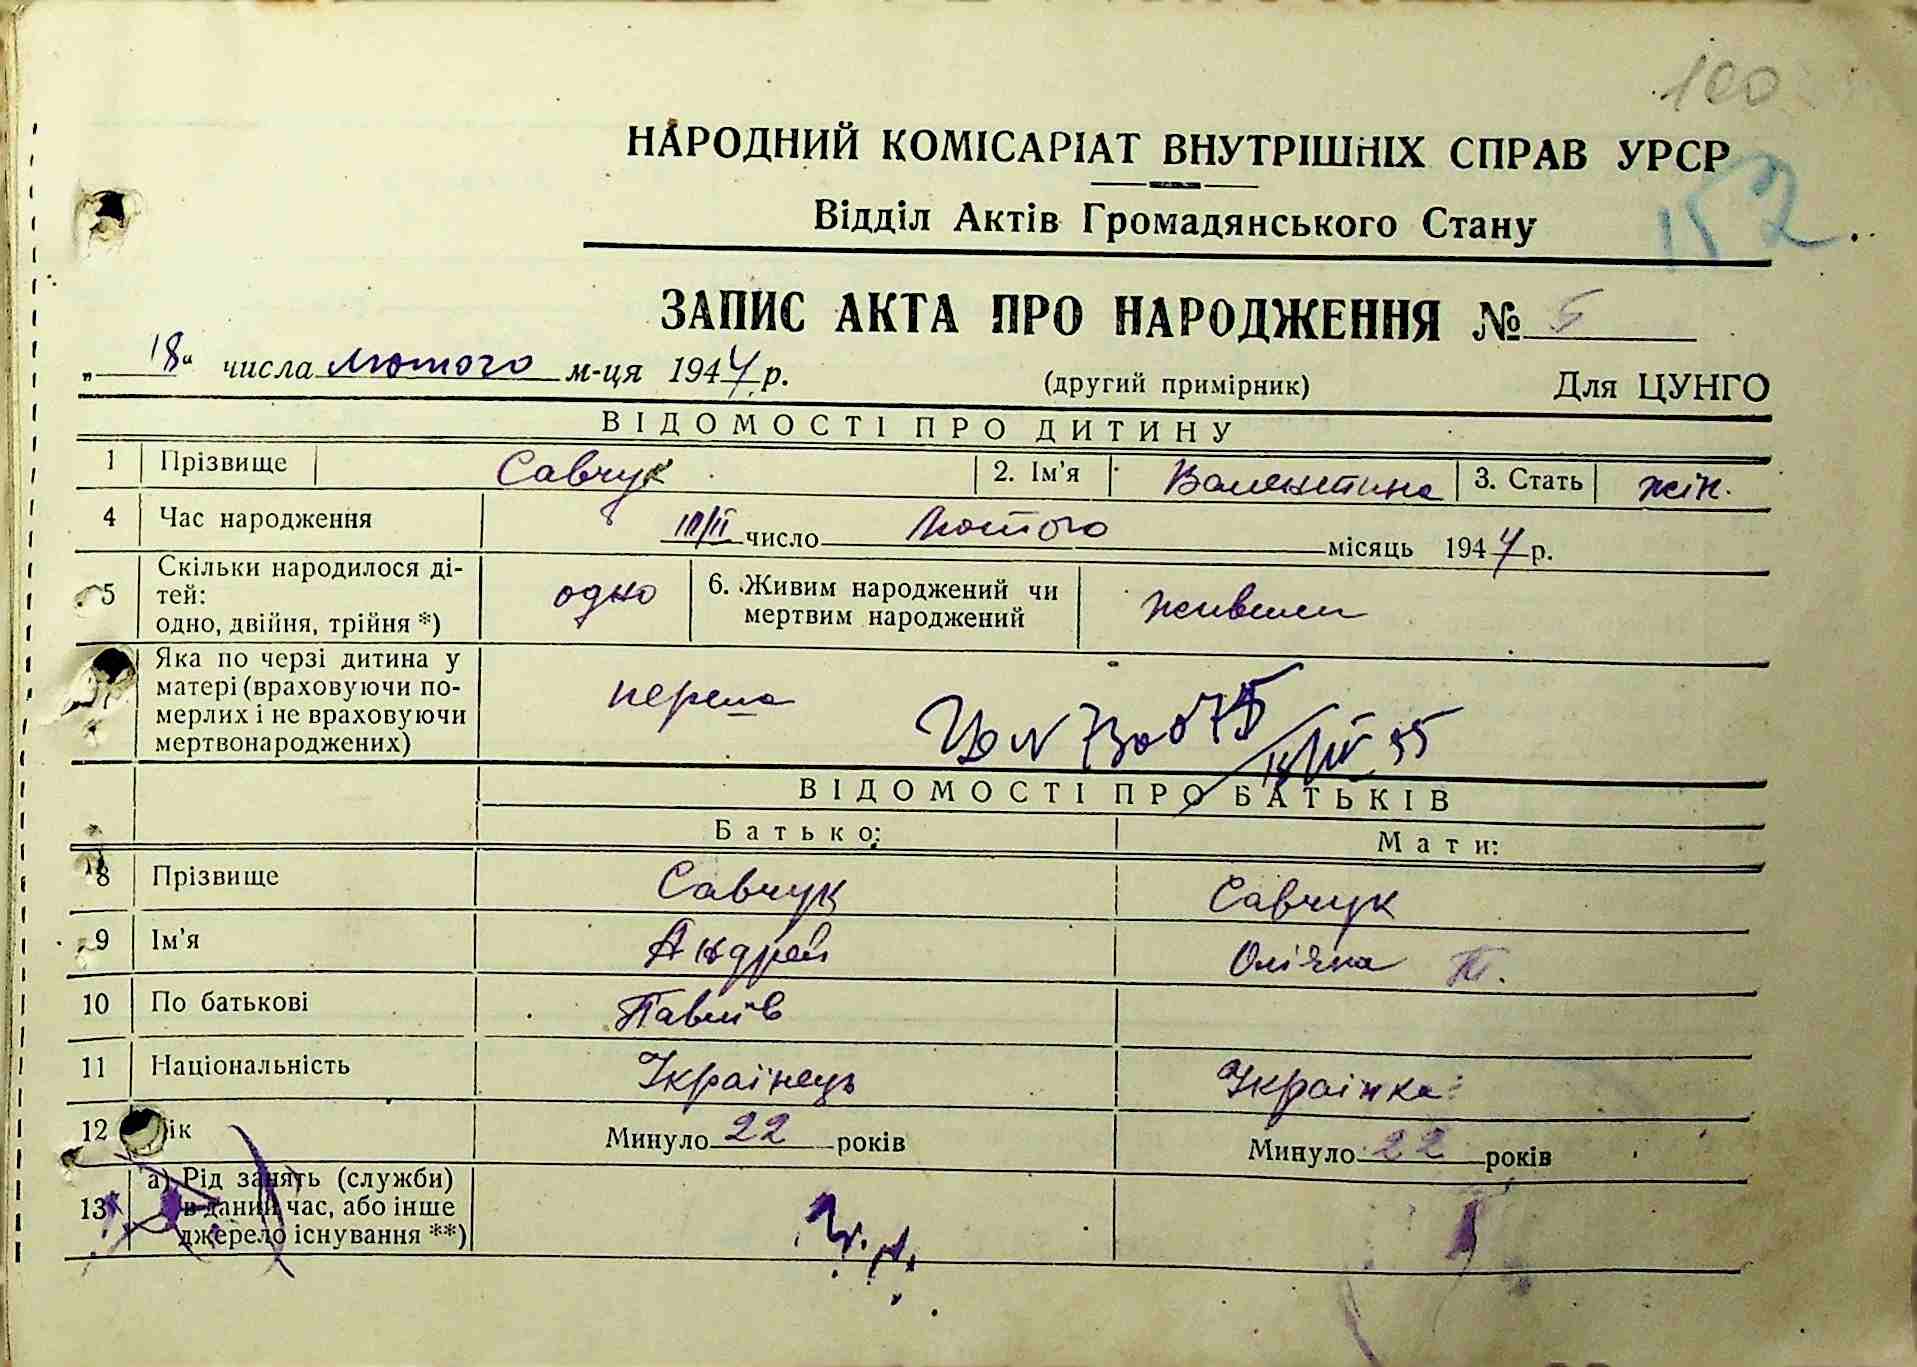 100
НАРОДНИЙ КОМІСАРІАТ ВНУТРІШНІХ СПРАВ УРСР
152
Відділ Актів Громадянського Стану
ЗАПИС АКТА ПРО НАРОДЖЕННЯ № 5
„ 18 “ числа лютого м-ця 1944 р. (другий примірник) Для ЦУНГО
ВІДОМОСТІ ПРО ДИТИНУ
1 Прізвище Савчук 2. Ім'я Валентина 3. Стать жін.
4 Час народження число Лютого місяць 1944 р.
5 Скільки народилося ді-
тей:
одно, двійня, трійня *) одно 6. Живим народжений чи
мертвим народжений живим
Яка по черзі дитина у
матері (враховуючи по-
мерлих і не враховуючи
мертвонароджених) перша
ВІДОМОСТІ ПРО БАТЬКІВ
Батько: Мати:
8 Прізвище Савчук Савчук
9 Ім'я Андрей
10 По батькові
11 Національність Українець Українка
12 Вік Минуло 22 років Минуло 22 років
13 а) Рід занять (служби)
в даний час, або інше
джерело існування **)